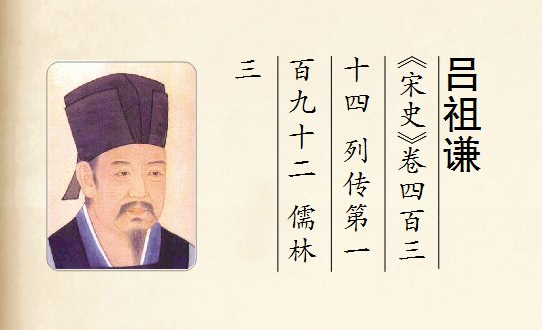 吕祖谦
《宋史》卷四百三
十四 列传第一
百九十二 儒林
三